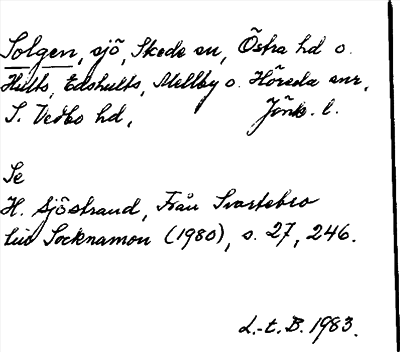 Solgen, sjö, Skede sn, Östra hd o.
Hults, Edshults, Mellby o. Höreda snr,
S. Vedbo hd, Jönk. l.
Se
H. Sjöstrand, Från Svartebro
till Socknamon (1980), s. 27, 246.
L.-t. B. 1983.